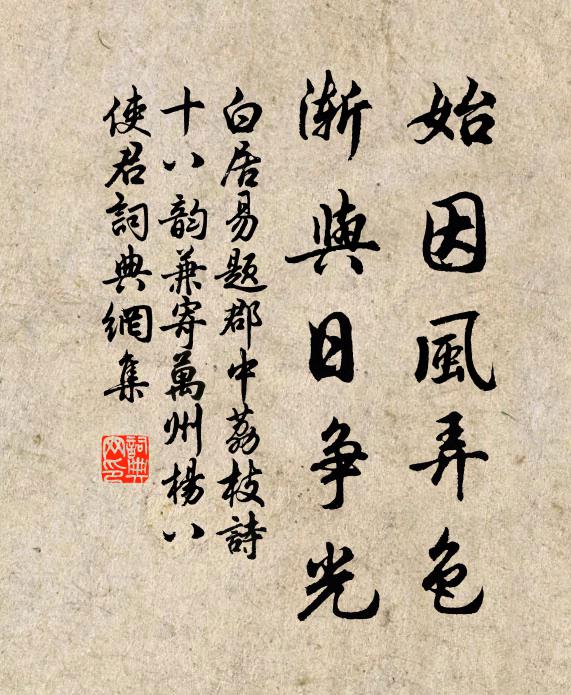 始因風弄色
漸與日争光
白居易題郡中荔枝詩
十八韵兼寄萬州楊八
使君詞典網集
詞典
网印